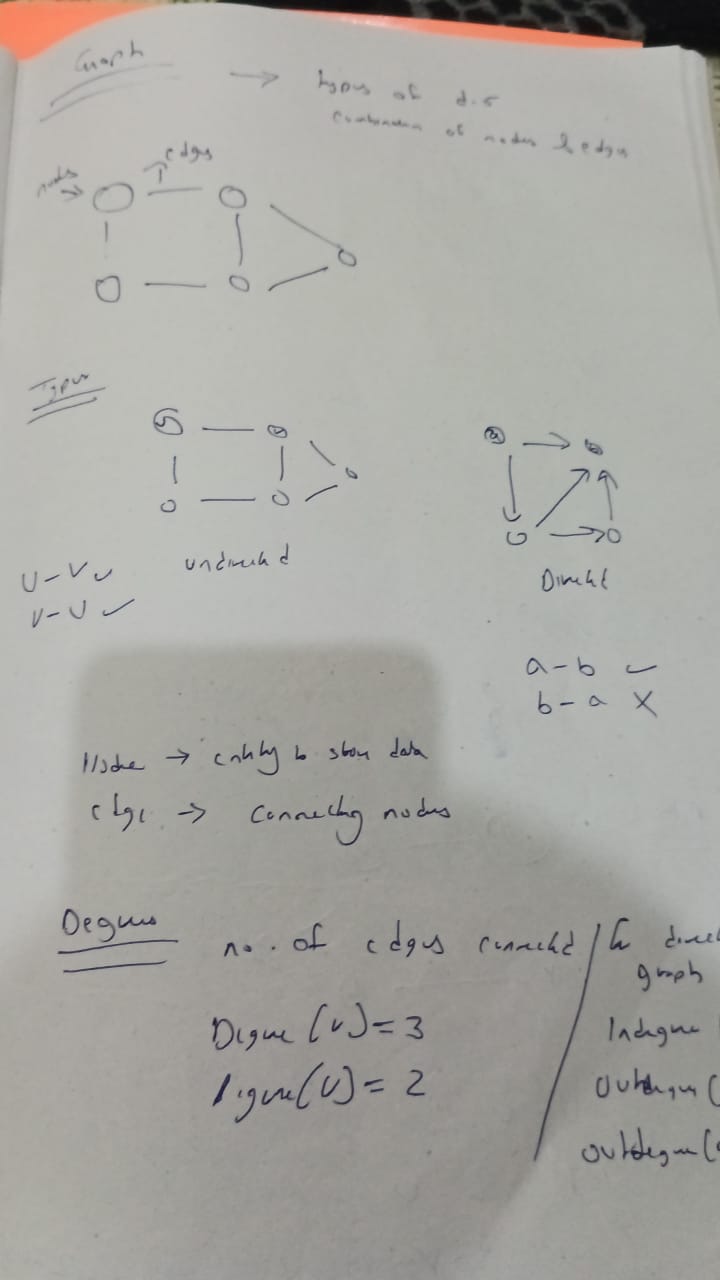 Graph → types of d.s
combination of nodes & edges
nodes edges
Types
undirected
Direct
U-V ✓
V-U ✓
a-b ✓
b-a X
Node → entity to store data
edge → connecting nodes
Degrees
no. of edges connected / In direc
graph
Degree (V)=3
Degree(U)=2
Indegree
Outdegree (
outdegree (